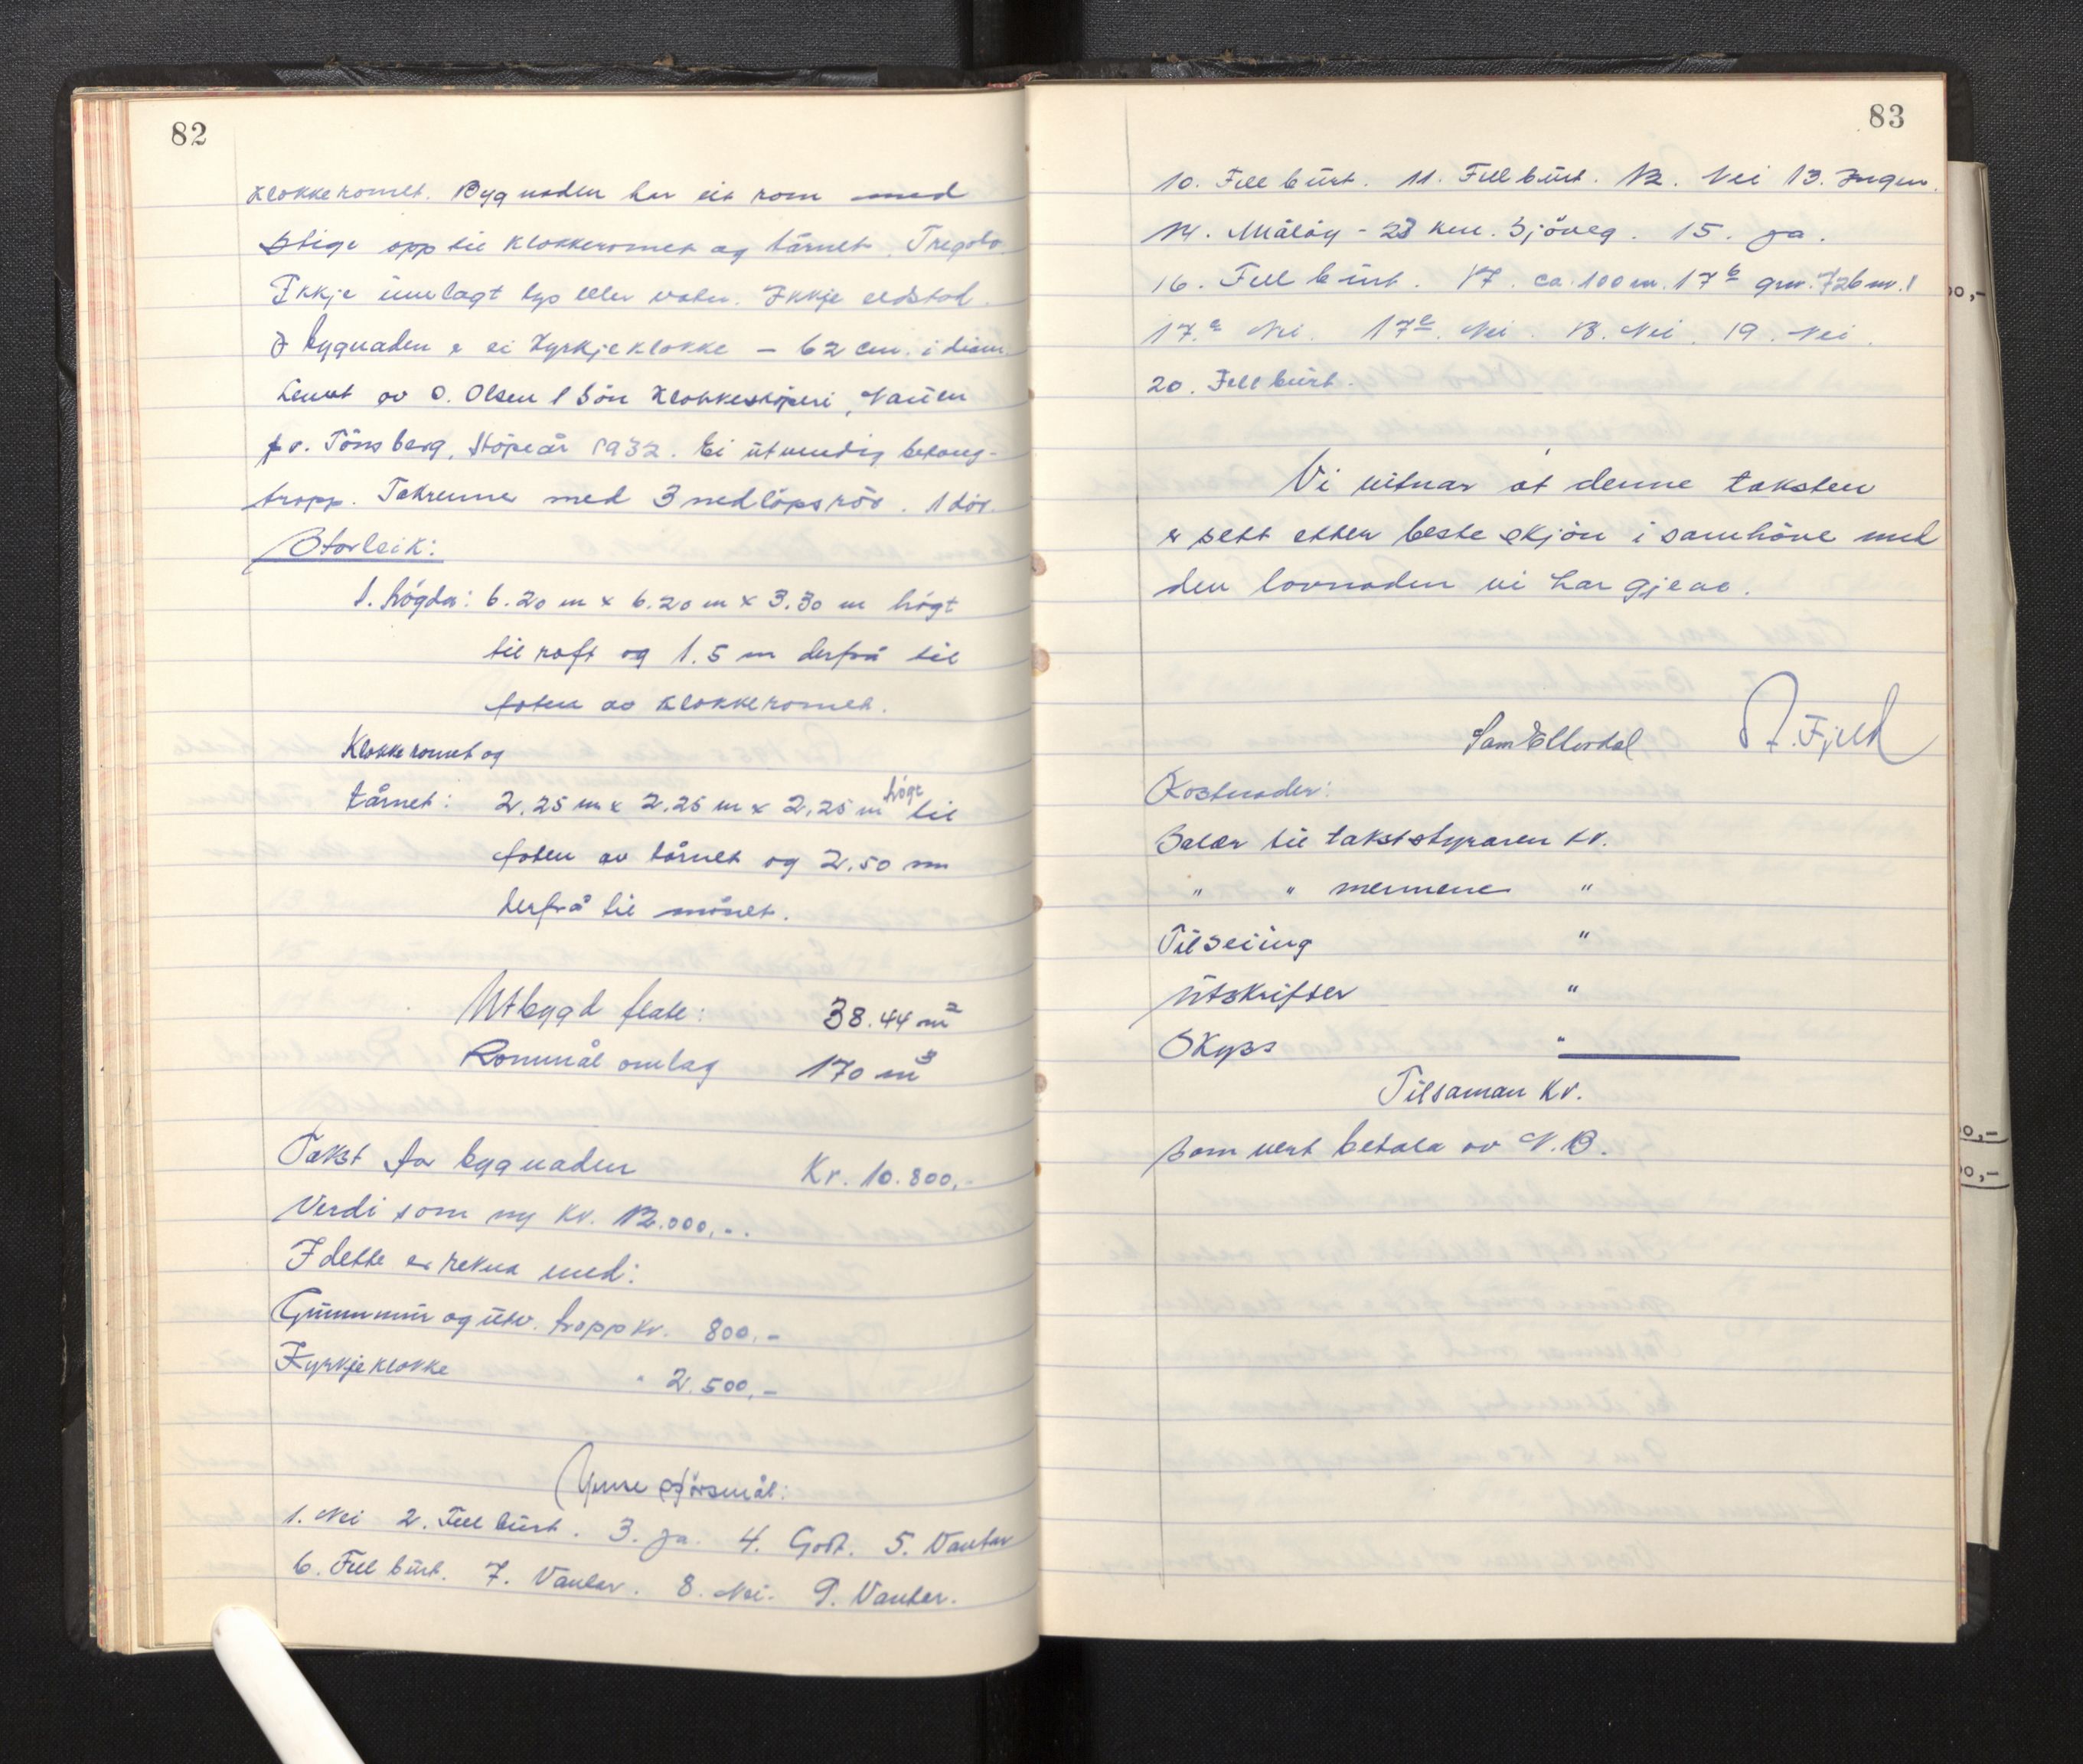 82
Klokkeromet. Bygnaden har eit rom med
stige opp til klokkeromet og tårnet. Tregolv.
Ikkje innlagt lys eller vatn. Ikkje eldstad.
I bygnaden er ei kyrkjeklokke – 62 cm. i diam.
levert av O. Olsen & Sön Klokkestöperi, Nauen
pr. Tönsberg, Stöpeår 1932. Ei utvendig betong-
tropp. Takrenner med 3 nedlöpsrör. 1 dör.
Storleik:
1. högda: 6.20 m x 6.20 m x 3.30 m högt
til raft og 1.5 m derfrå til
foten av klokkeromet.
Klokkeromet og
tårnet: 2.25 m x 2.25 m x 2.25 m högt til
foten av tårnet og 2.50 m
derfrå til mönet.
Utbygd flate: 38.44 m²
Rommål omlag 170 m³
Takst for bygnaden Kr. 10.800,-
Verdi som ny kr. 12.000,-.
I dette er rekna med:
Grunnmur og utv. tropp kr. 800,-
Kyrkjeklokke " 2.500,-
Ymse spörsmål:
1. Nei 2. Fell burt. 3. Ja. 4. Godt. 5. Vantar
6. Fell burt. 7. Vantar. 8. Nei. 9. Vantar.
83
10. Fell burt. 11. Fell burt. 12. Nei 13. Ingen.
14. Målöy – 23 km. Sjöveg. 15. Ja.
16. Fell burt. 17. ca. 100 m. 17b gnr. 726 m.
17.c Nei. 17d. Nei. 18. Nei. 19. Nei.
20. Fell burt.
Vi vitnar at denne taksten
er sett etter beste skjön i samhöve med
den lovnaden vi har gjeve.
Sam Ellerdal A. Fjell
Kostnader:
Salær til takststyraren kr.
" " mennene "
Tilseiing "
Utskrifter "
Skyss "
Tilsaman Kr.
som vert betala av N.B.